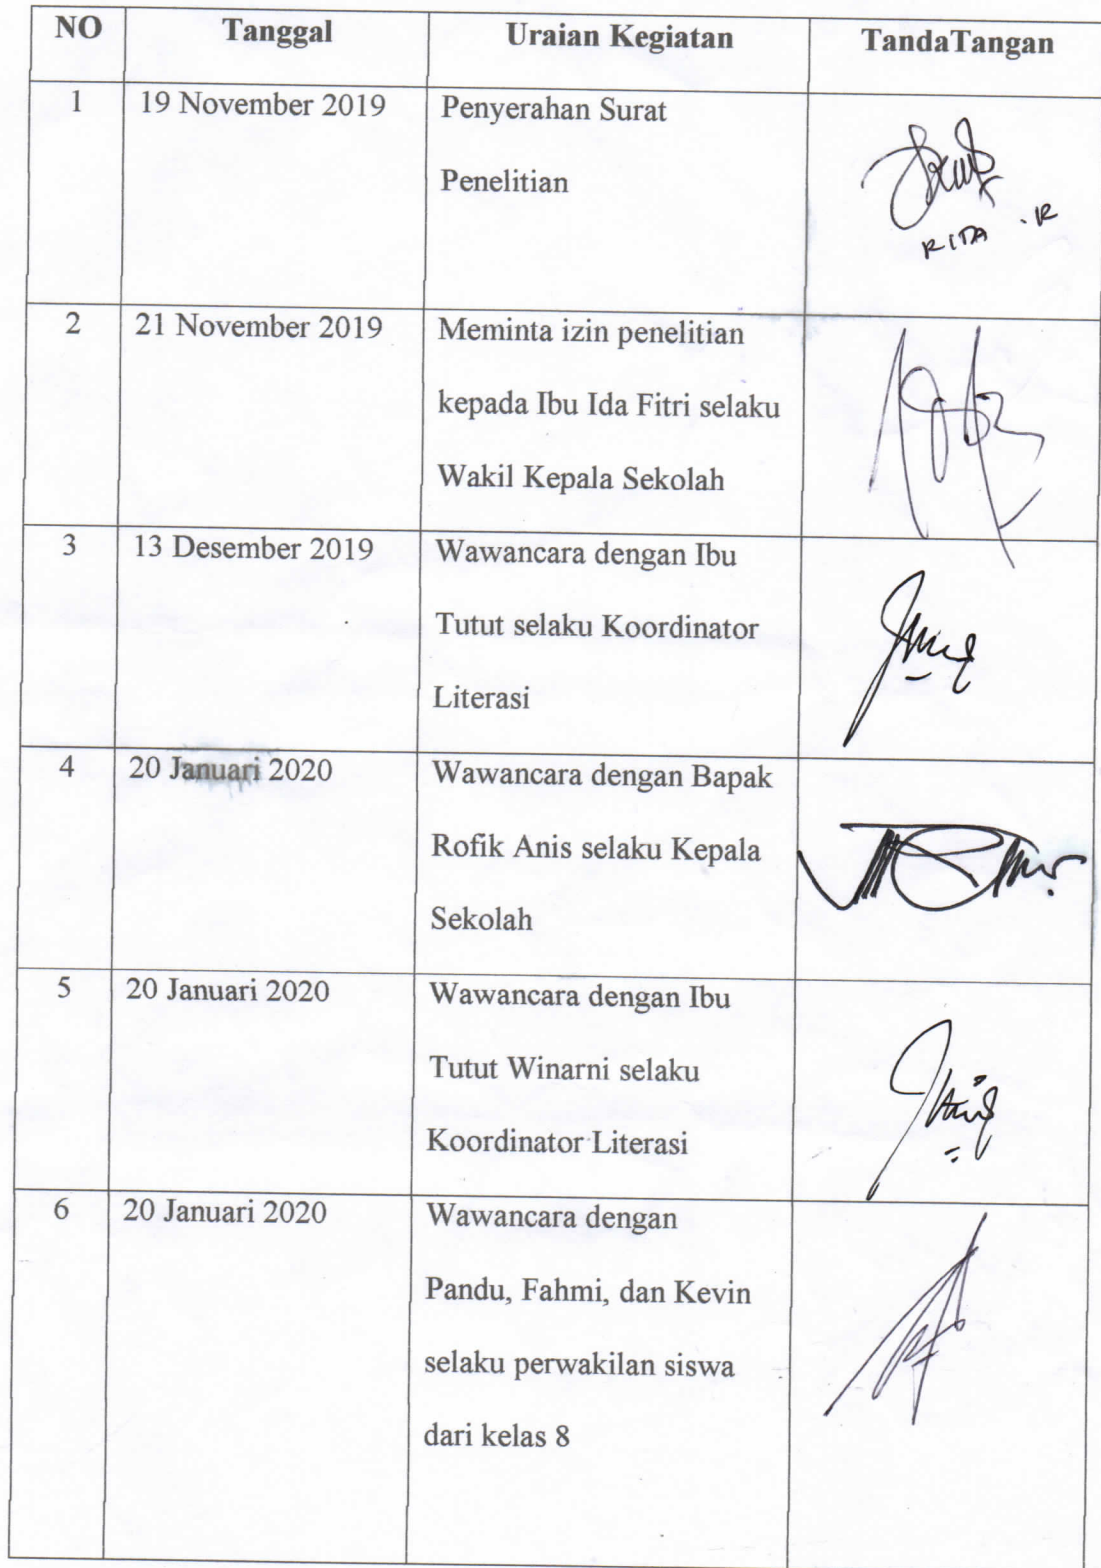 NO Tanggal Uraian Kegiatan TandaTangan
1 19 November 2019 Penyerahan Surat
Penelitian
RITA .R
2 21 November 2019 Meminta izin penelitian
kepada Ibu Ida Fitri selaku
Wakil Kepala Sekolah
3 13 Desember 2019 Wawancara dengan Ibu
Tutut selaku Koordinator
Literasi
4 20 Januari 2020 Wawancara dengan Bapak
Rofik Anis selaku Kepala
Sekolah
5 20 Januari 2020 Wawancara dengan Ibu
Tutut Winarni selaku
Koordinator Literasi
6 20 Januari 2020 Wawancara dengan
Pandu, Fahmi, dan Kevin
selaku perwakilan siswa
dari kelas 8